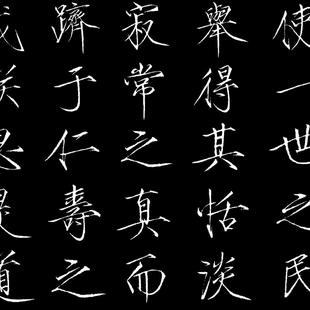 使一世之民
舉得其恬淡
寂常之真而
躋于仁壽之
域朕思是道